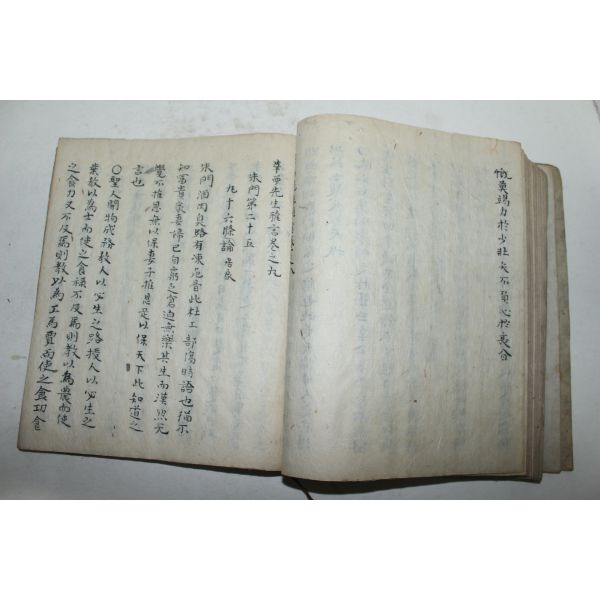 慨糞竭力於少壮矣不負心於衰合
華西先生雅言卷之九
朱門第二十五
九十六條論居家
朱門酒肉臭路有凍死骨此杜工部傷時語也猶不
知富貴家妻婦已自窮之窘迫無樂其生而漠然无
覺不推恩無以保妻子推恩足以保天下此知道之
言也
○聖人開物成務教人以必生之路授人以必生之
業教以為士而使之食祿不及焉則教以為農而使
之食力又不及焉則教以為工為賈而使之食功食